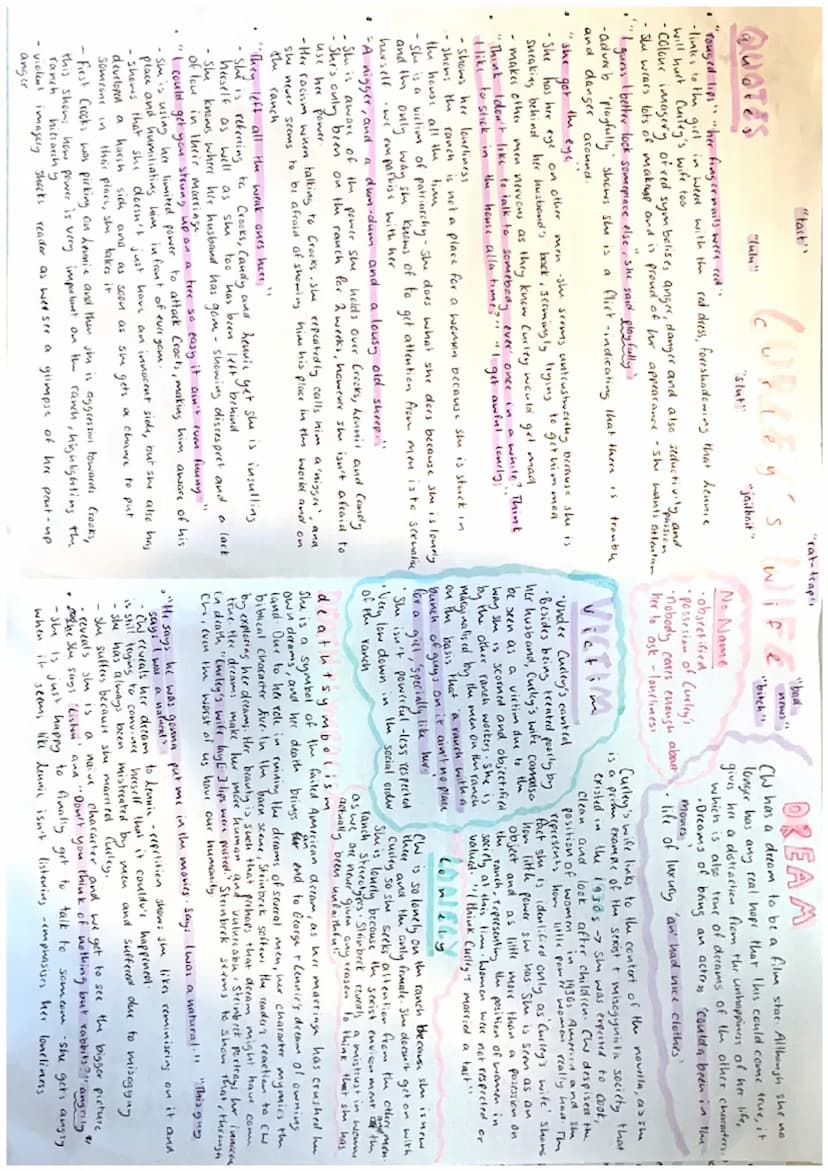 "rat-trap"
"tart"
"lulu"
"slut"
"jailbait"
"bitch"
"bad news"
CURLEY'S WIFE
QUOTES
• "rouged lips" "her fingernails were red"
- links to the girl in weed with the red dress, foreshadowing that Lennie
will hurt Curley's wife too
- Colour imagery of red symbolises anger, danger and also seductivity and passion
- She wears lots of makeup and is proud of her appearance - she wants attention
• "I guess I better look someplace else," she said playfully
- adverb 'playfully' shows she is a flirt - indicating that there is trouble
and danger around.
• "She got the eye"
- She has her eye on other men - she seems untrustworthy because she is
sneaking behind her husband's back, seemingly trying to get him mad
- makes other men nervous as they know Curley would get mad
• "Think I don't like to talk to somebody ever' once in a while? Think
I like to stick in the house alla time?" "I get awful lonely"
- Shows her loneliness
- shows the ranch is not a place for a woman because she is stuck in
the house all the time
- She is a victim of patriarchy - She does what she does because she is lonely
and the only way she knows of to get attention from men is to sexualise
herself - we empathise with her
• "A nigger and a dum-dum and a lousy old sheep"
- She is aware of the power she holds over Crooks, Lennie and Candy
- She's only been on the ranch for 2 weeks, however she isn't afraid to
use her power
- Her racism when talking to Crooks. She repeatedly calls him a 'nigger' and
she never seems to be afraid of showing him his place in the world and on
the ranch
• "They left all the weak ones here"
- She is referring to Crooks, Candy and Lennie yet she is insulting
herself as well as she too has been left behind
- She knows where her husband has gone - showing disrespect and a lack
of love in their marriage
• "I could get you strung up on a tree so easy it ain't even funny"
- She is using her limited power to attack Crooks, making him aware of his
place and humiliating him in front of everyone.
- Shows that she doesn't just have an innocent side, but she also has
developed a harsh side and as soon as she gets a chance to put
someone in their place, she takes it
- First Crooks was picking on Lennie and then she is aggressive towards Crooks,
this shows how power is very important on the ranch, highlighting the
ranch hierarchy
- violent imagery shocks reader as we see a glimpse of her pent-up
anger
No Name
• Objectified
• Possession of Curley's
• Nobody cares enough about
her to ask - loneliness
DREAM
CW has a dream to be a film star. Although she no
longer has any real hope that this could come true, it
gives her a distraction from the unhappiness of her life,
which is also true of dreams of the other characters.
• Dreams of being an actress 'coulda been in the
movies'
• life of luxury 'an' had nice clothes'
VICTIM
• Under Curley's control
• Besides being treated poorly by
her husband, Curley's wife can also
be seen as a victim due to the
way she is scorned and objectified
by the other ranch workers. She is
marginalised by the men on the ranch
on the basis that "a ranch with a
bunch of guys on it ain't no place
for a girl, specially like her"
• She isn't powerful - less respected
• Very low down in the social order
of the ranch
Curley's wife links to the context of the novella, as she
is a prime example of the sexist & misogynistic society that
existed in the 1930s → She was expected to cook,
clean and look after children. CW despised the
position of women in 1930s America and she
represents how little power women really had. The
fact she is identified only as 'Curley's wife' shows
how little power she has. She is seen as an
object and as little more than a possession on
the ranch, representing the position of women in
society at this time. Women were not respected or
valued. "I think Curley's married a tart"
lonely
CW is so lonely on the ranch because she is new
there and the only female. She doesn't get on with
Curley so she seeks attention from the other men.
She is lonely because the sexist environment and the
ranch stereotypes. Steinbeck reveals a mistrust in women
as we are never given any reason to think that she has
actually been unfaithful
death + symbolism
She is a symbol of the failed American dream, as her marriage has crushed her
own dreams, and her death brings an end to George + Lennie's dream of owning
land. Due to her role in ruining the dreams of several men, her character mimics the
biblical character Eve. In the barn scene, Steinbeck softens the reader's reaction to CW
by exploring her dreams. Her beauty is such that perhaps that dream might have come
true. Her dreams make her more human and vulnerable. Steinbeck portrays her innocence
in death "Curley's wife lips were parted" Steinbeck seems to show that, through
CW, even the worst of us have our humanity
• "He says he was gonna put me in the movies. Says I was a natural." "This guy
says I was a natural"
- CW reveals her dream to Lennie - repetition shows she likes reminiscing on it and
is still trying to convince herself that it could've happened.
- She has always been mistreated by men and suffered due to misogyny
- She suffers because she married Curley.
- reveals she is a naive character and we get to see the bigger picture
• She says 'Listen' and "Don't you think of nothing but rabbits?" angrily
- She is just happy to finally get to talk to someone - she gets angry
when it seems like Lennie isn't listening - emphasises her loneliness